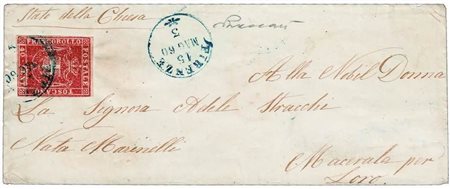 Stato della Chiesa
FIRENZE
15
MAG 60
3
BOLLO
POSTALE
TOSCANO
Alla Nobil Donna
La Signora Adele Stracchi
Nata Marinelli
Macerata per
Loro.